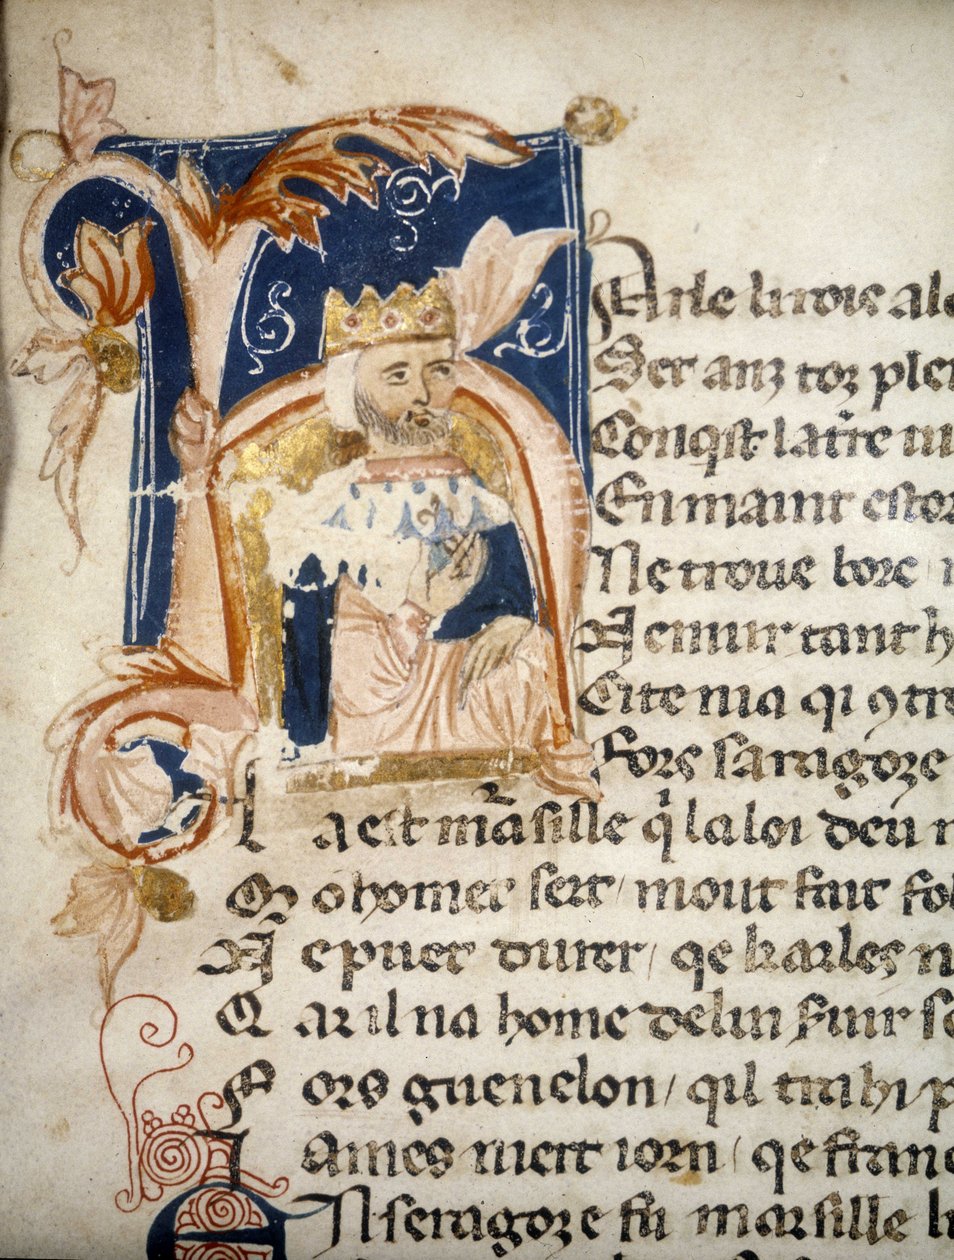 Arle li rois a la
Set anz toz plei
Conqst la tere
En maint estor
Ne troue borc
Ne mur tant h
Cite nia qi
Fors saragoze
La est marsille qi la loi deu n
Mohomet sert / mout fait fol
Ne puet durer / qe karles n
Qar il na home de lui
Fors guenelon / qil
James niert iorn / qe
N saragoze fu marsille